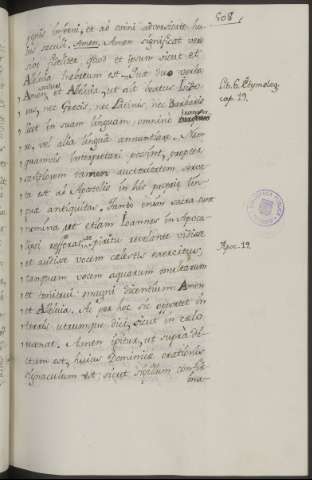 508.
Amen, Amen significat vere
sive fideliter, quod et ipsum sicut et
Alleluia habetum est. Quæ duo verba
Amen et Alleluia, ut ait beatus Isido-
rus, nec Grecis, nec Latinis, nec Barbaris
licet in suam linguam omnino transfer-
re, vel alia lingua annuntiare. Nam
quamvis interpretari possint, propter
sanctiorem tamen auctoritatem serva-
ta est ab Apostolis in his propriæ lin-
guæ antiquitas. Tanto enim sacra sunt
nomina, ut etiam Ioannes in Apoca-
lipsi referat, se spiritu revelante vidisse
et audisse vocem cælestis exercitus,
tamquam vocem aquarum multarum
et tonitrui magni dicentium: Amen
et Alleluia. Ac per hoc sic oportet in
terris utrumque dici, sicut in cælo
resonat. Amen igitur, ut supra di-
ctum est, huius Dominicæ orationis
signaculum est: sicut sigillum
Lib. 6. Etymolog.
cap. 19.
Apoc. 19.